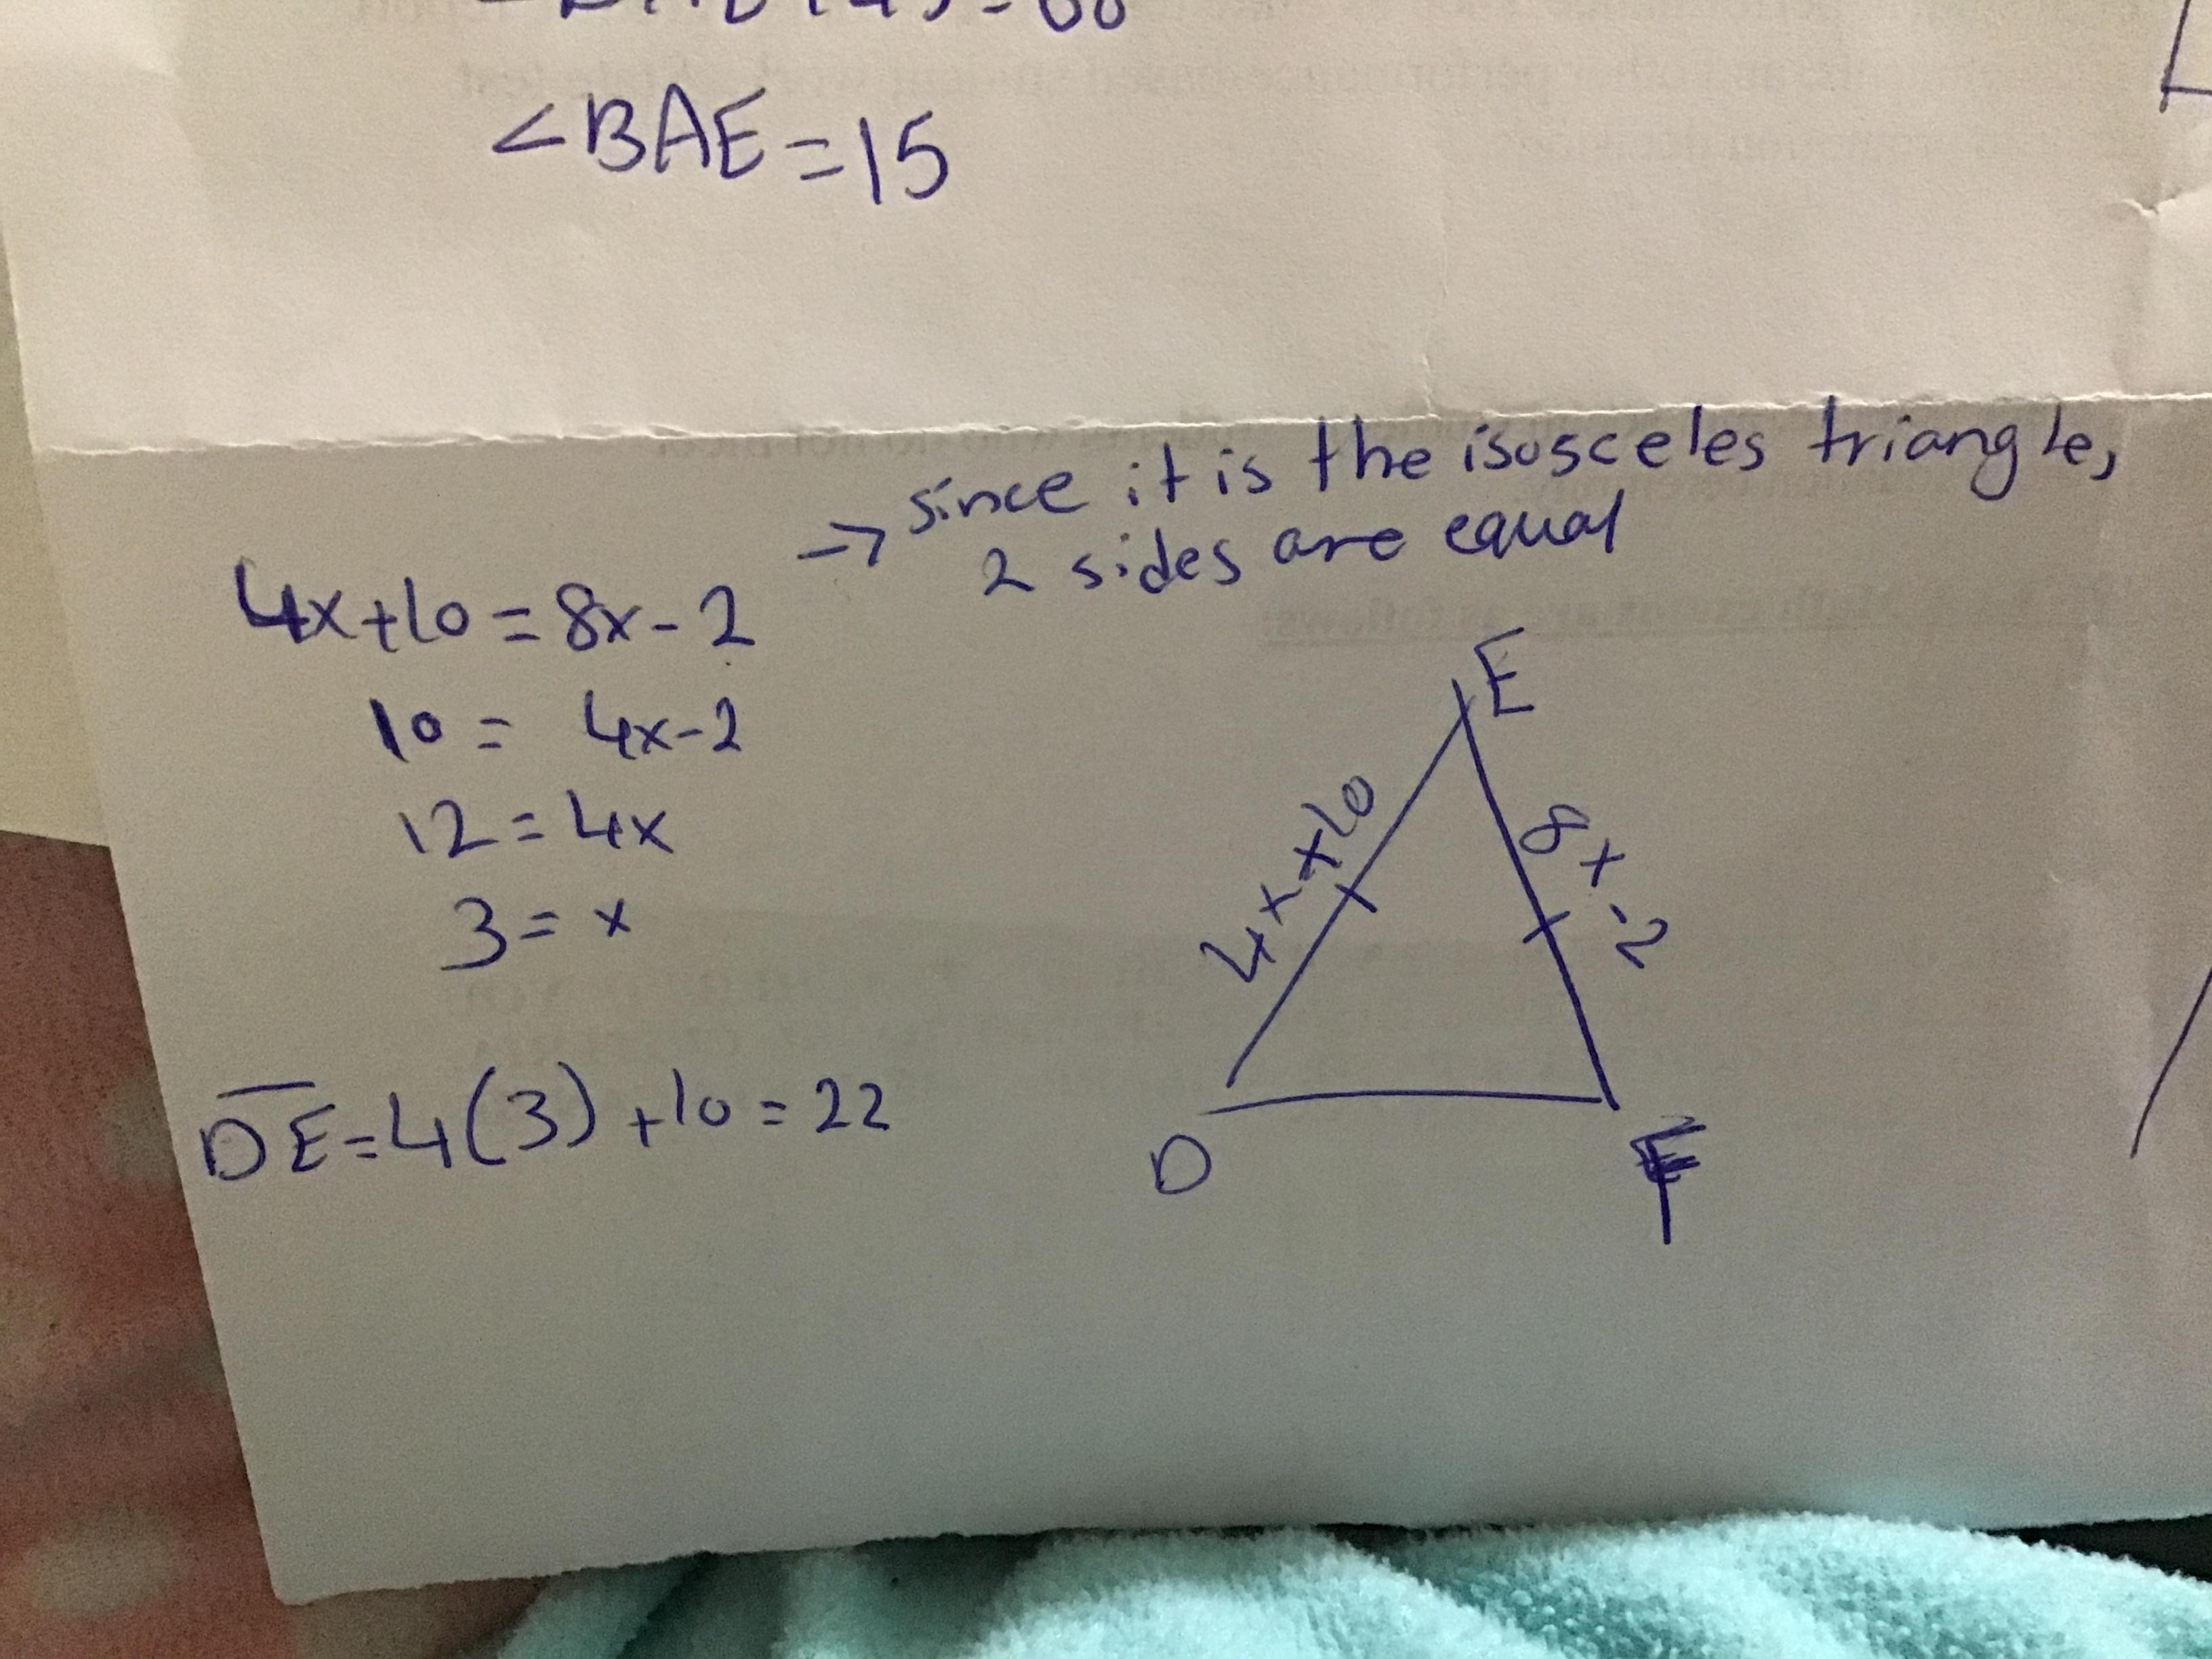 ∠BAE = 15
→ since it is the isosceles triangle,
2 sides are equal
4x+10 = 8x-2
10 = 4x-2
12 = 4x
3 = x
DE = 4(3) + 10 = 22
E
4x+10
8x-2
D
F